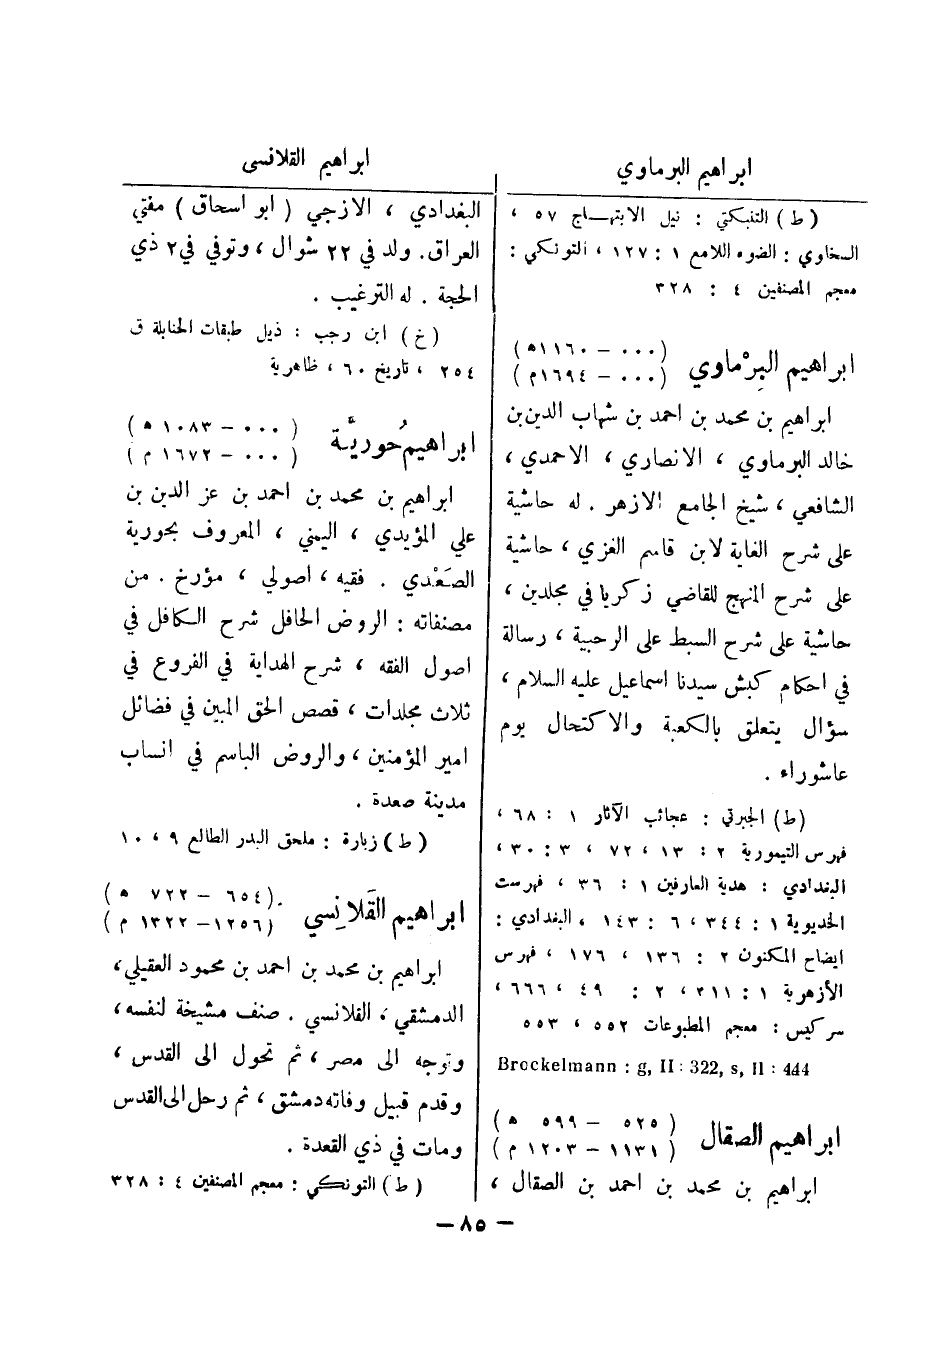 ابراهيم البرماوي
(ط) التنبكتي : نيل الابتهاج ٥٧ ،
السخاوي : الضوء اللامع ١ : ١٢٧ ، التونكي :
معجم المصنفين ٤ : ٣٢٨
ابراهيم البِرْماوي
(٠٠٠ – ١١٦٠ ه)
(٠٠٠ – ١٦٩٤ م)
ابراهيم بن محمد بن احمد بن شهاب الدين بن
خالد البرماوي ، الانصاري ، الاحمدي ،
الشافعي ، شيخ الجامع الازهر . له حاشية
على شرح الغاية لابن قاسم الغزي ، حاشية
على شرح المنهج للقاضي زكريا في مجلدين ،
حاشية على شرح السبط على الرحبية ، رسالة
في احكام كبش سيدنا اسماعيل عليه السلام ،
سؤال يتعلق بالكعبة والاكتحال يوم
عاشوراء .
(ط) الجبرتي : عجائب الآثار ١ : ٦٨ ،
فهرس التيمورية ٢ : ١٣ ، ٧٢ ، ٣ : ٣٠ ،
البغدادي : هدية العارفين ١ : ٣٦ ، فهرست
الخديوية ١ : ٣٤٤ ، ٦ : ١٤٣ ، البغدادي :
ايضاح المكنون ٢ : ١٣٦ ، ١٧٦ ، فهرس
الأزهرية ١ : ٣١١ ، ٢ : ٤٩ ، ٦٦٦ ،
سركيس : معجم المطبوعات ٥٥٢ ، ٥٥٣
Brockelmann : g, II : 322, s, II : 444
ابراهيم الصقال
(٥٢٥ – ٥٩٩ ه)
(١١٣١ – ١٢٠٣ م)
ابراهيم بن محمد بن احمد بن الصقال ،
ابراهيم القلانسي
البغدادي ، الازجي (ابو اسحاق) مفتي
العراق. ولد في ٢٢ شوال ، وتوفي في ٢ ذي
الحجة . له الترغيب .
(خ) ابن رجب : ذيل طبقات الحنابلة ق
٢٥٤ ، تاريخ ٦٠ ، ظاهرية
ابراهيم حُوريَّة
(٠٠٠ – ١٠٨٣ ه)
(٠٠٠ – ١٦٧٢ م)
ابراهيم بن محمد بن احمد بن عز الدين بن
علي المؤيدي ، اليمني ، المعروف بحورية
الصَعْدي . فقيه ، اصولي ، مؤرخ . من
مصنفاته : الروض الحافل شرح الكافل في
اصول الفقه ، شرح الهداية في الفروع في
ثلاث مجلدات ، قصص الحق المبين في فضائل
امير المؤمنين ، والروض الباسم في انساب
مدينة صعدة .
(ط) زبارة : ملحق البدر الطالع ٩ ، ١٠
ابراهيم القَلانِسي
(٦٥٤ – ٧٢٢ ه)
(١٢٥٦ – ١٣٢٢ م)
ابراهيم بن محمد بن احمد بن محمود العقيلي ،
الدمشقي ، القلانسي . صنف مشيخة لنفسه ،
وتوجه الى مصر ، ثم تحول الى القدس ،
وقدم قبيل وفاته دمشق ، ثم رحل الى القدس
ومات في ذي القعدة .
(ط) التونكي : معجم المصنفين ٤ : ٣٢٨
– ٨٥ –